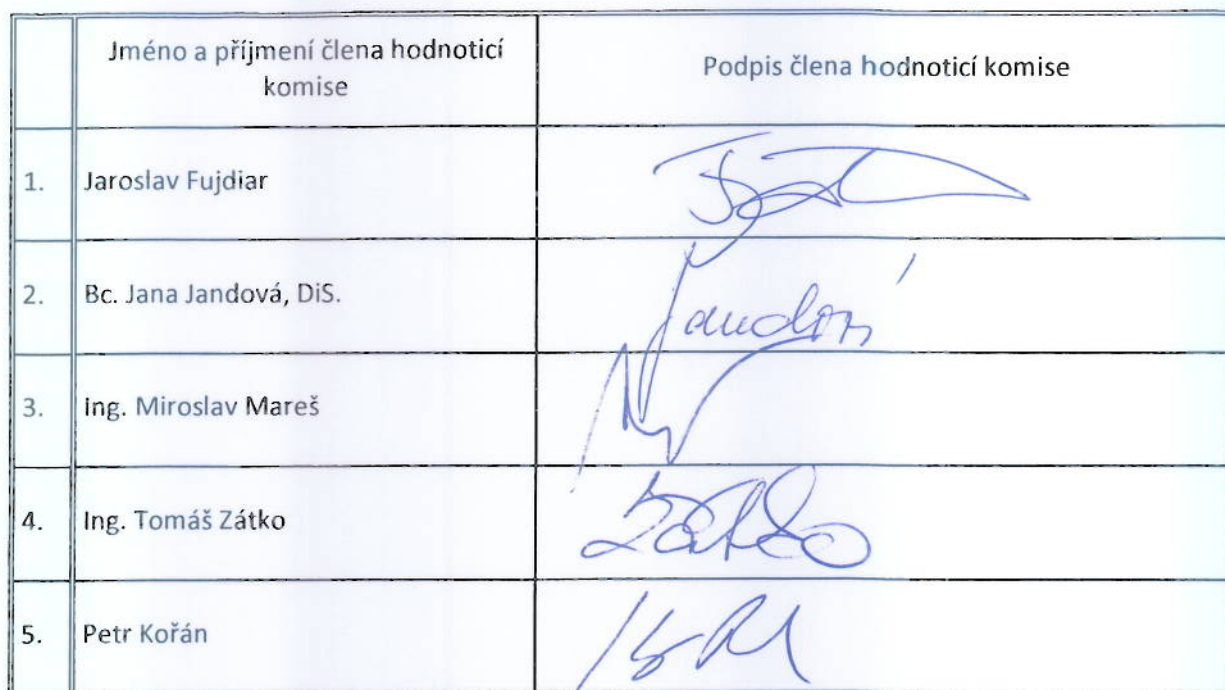 Jméno a příjmení člena hodnoticí
komise
Podpis člena hodnoticí komise
1. Jaroslav Fujdiar
2. Bc. Jana Jandová, DiS. Jandová
3. Ing. Miroslav Mareš
4. Ing. Tomáš Zátko Zátko
5. Petr Kořán